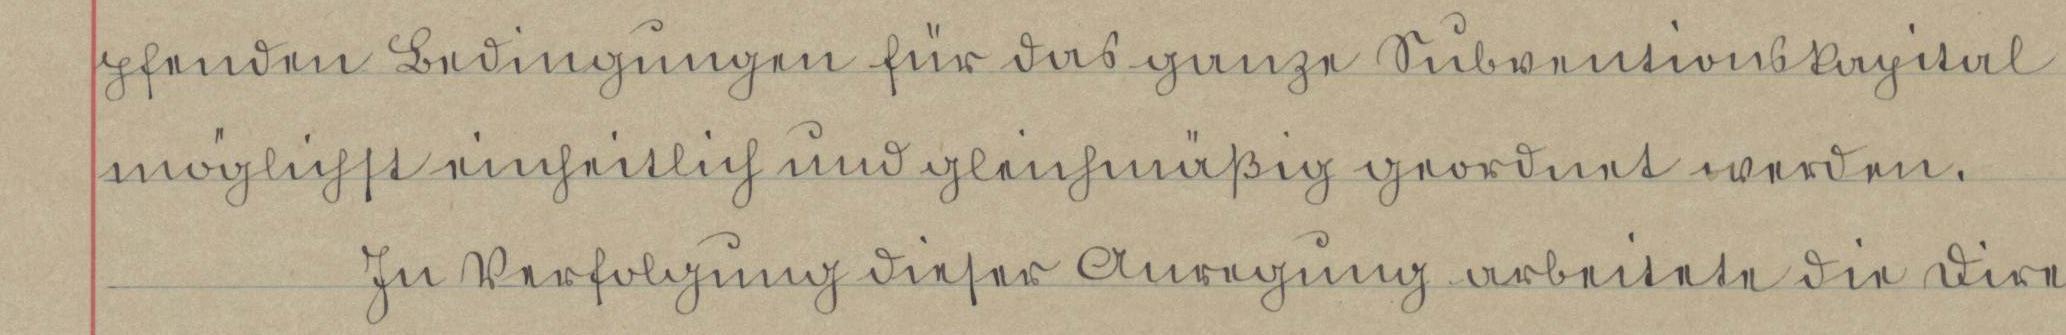 pfenden Bedingungen für das ganze Subventionskapital
möglichst einheitlich und gleichmäßig geordnet werden.
In Verfolgung dieser Anregung arbeitete die Dire